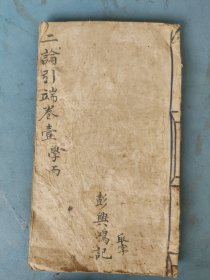 二論引端卷壹學而
彭興鳴記